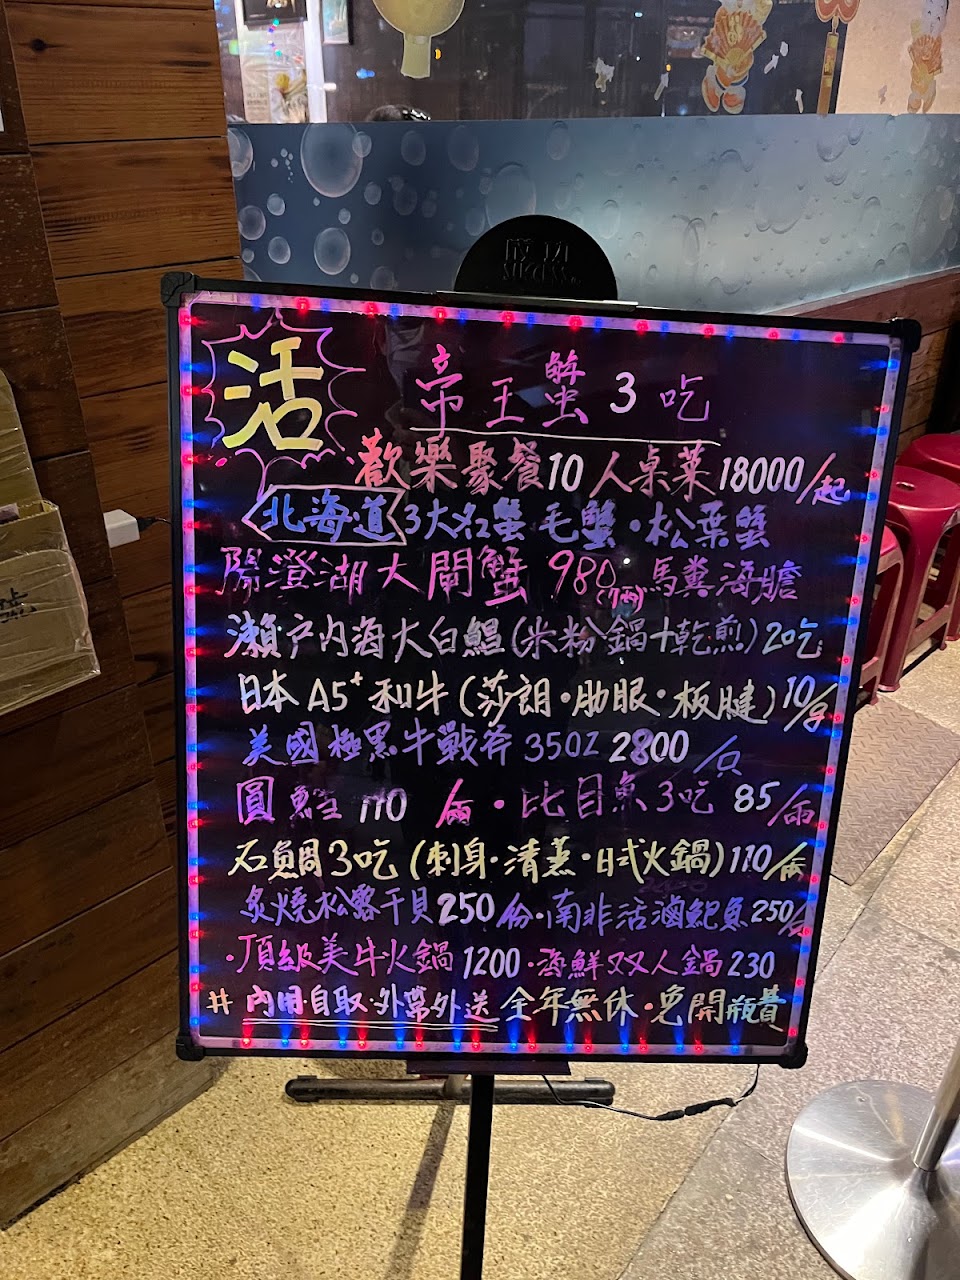 活
帝王蟹 3 吃
歡樂聚餐10人桌菜18000/起
北海道 3大名蟹 毛蟹·松葉蟹
陽澄湖大閘蟹 980(7兩) 馬糞海膽
瀨戶內海大白鯧(米粉鍋+乾煎)2吃
日本A5+和牛(莎朗·肋眼·板腱)10/
美國極黑牛戰斧 35OZ 2800/只
圓鱈 110/兩·比目魚3吃 85/兩
石鯛3吃(刺身·清蒸·日式火鍋)110/兩
炙燒松露干貝250/份·南非活滷鮑魚250/
·頂級美牛火鍋1200·海鮮双人鍋230
# 內用·自取·外帶外送 全年無休·免開瓶費